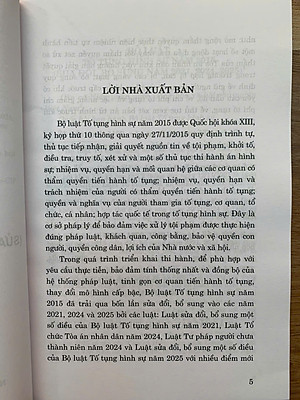 LỜI NHÀ XUẤT BẢN
Bộ luật Tố tụng hình sự năm 2015 được Quốc hội khóa XIII,
kỳ họp thứ 10 thông qua ngày 27/11/2015 quy định trình tự,
thủ tục tiếp nhận, giải quyết nguồn tin về tội phạm, khởi tố,
điều tra, truy tố, xét xử và một số thủ tục thi hành án hình
sự; nhiệm vụ, quyền hạn và mối quan hệ giữa các cơ quan có
thẩm quyền tiến hành tố tụng; nhiệm vụ, quyền hạn và
trách nhiệm của người có thẩm quyền tiến hành tố tụng;
quyền và nghĩa vụ của người tham gia tố tụng, cơ quan, tổ
chức, cá nhân; hợp tác quốc tế trong tố tụng hình sự. Đây là
cơ sở pháp lý để bảo đảm việc xử lý tội phạm được thực hiện
đúng pháp luật, khách quan, công bằng, bảo vệ quyền con
người, quyền công dân, lợi ích của Nhà nước và xã hội.
Trong quá trình triển khai thi hành, để phù hợp với
yêu cầu thực tiễn, bảo đảm tính thống nhất và đồng bộ của
hệ thống pháp luật, tinh gọn cơ quan tiến hành tố tụng,
thay đổi mô hình cấp bậc, Bộ luật Tố tụng hình sự năm
2015 đã trải qua bốn lần sửa đổi, bổ sung vào các năm
2021, 2024 và 2025 bởi các luật: Luật sửa đổi, bổ sung một
số điều của Bộ luật Tố tụng hình sự năm 2021, Luật Tổ
chức Tòa án nhân dân năm 2024, Luật Tư pháp người chưa
thành niên năm 2024 và Luật sửa đổi, bổ sung một số điều
của Bộ luật Tố tụng hình sự năm 2025 với nhiều điểm mới
5